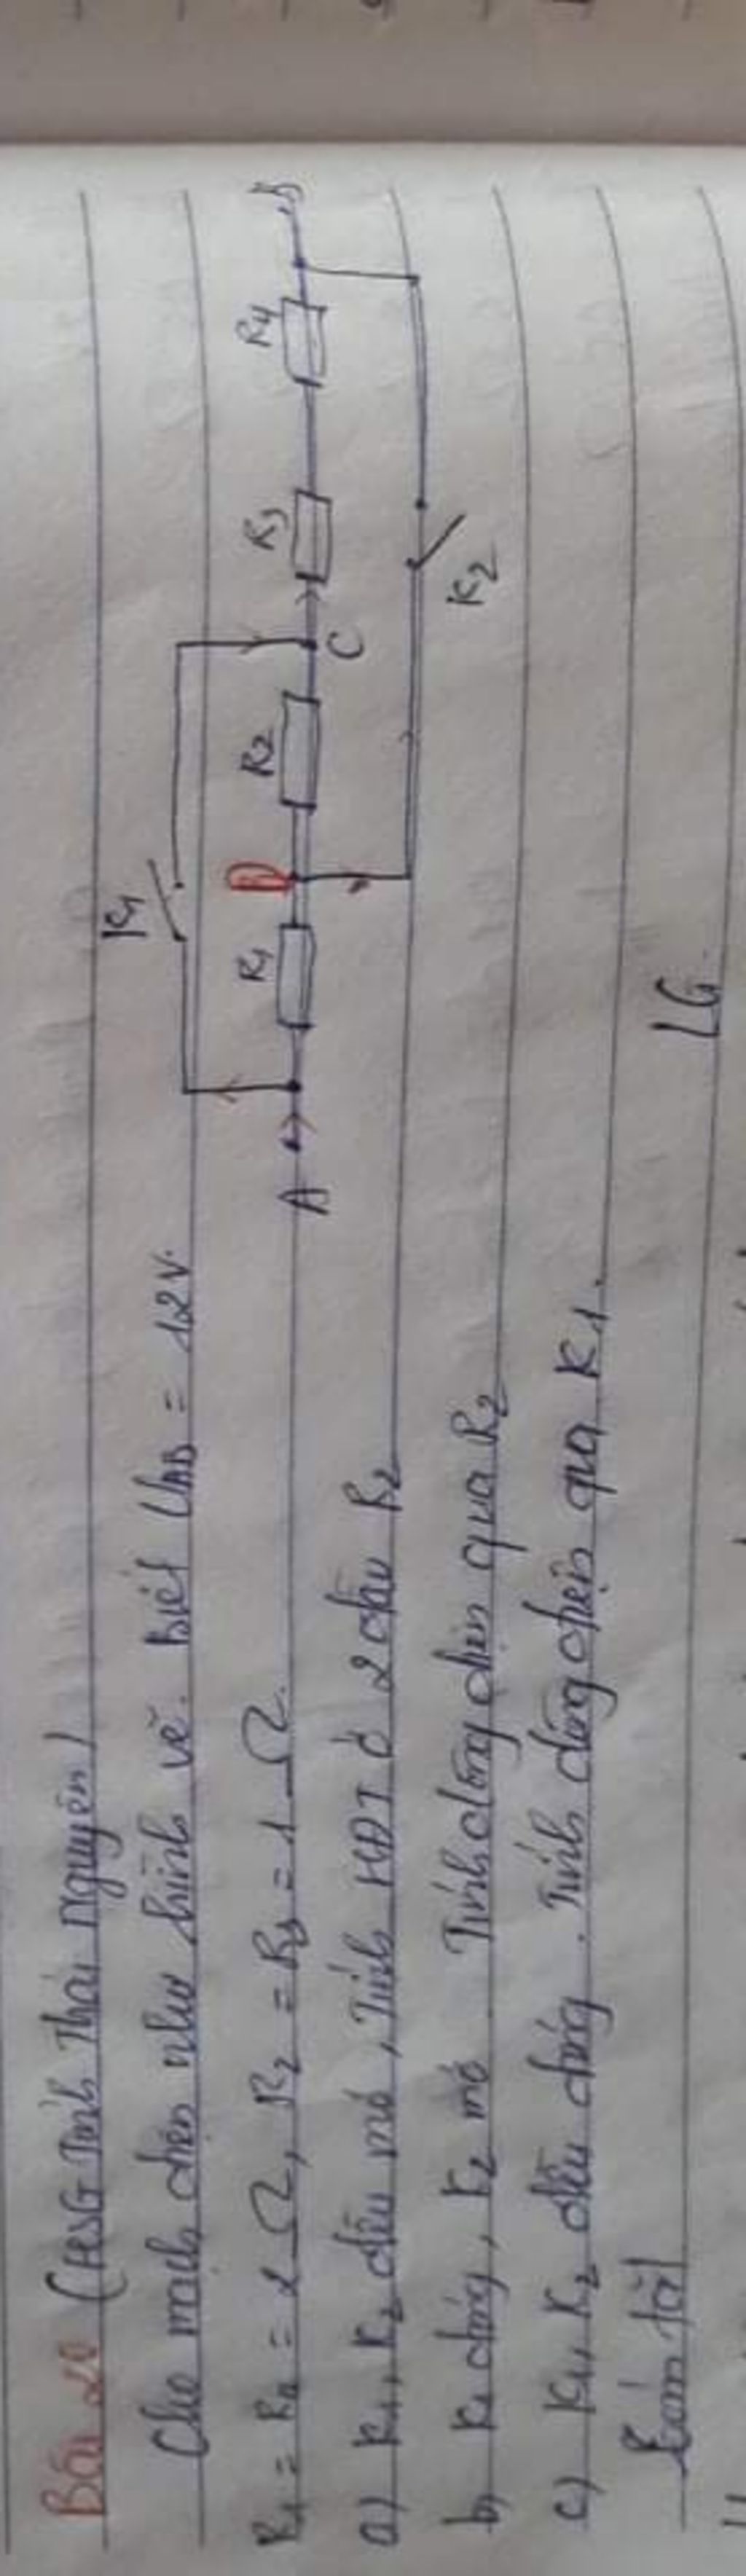 Bài 20 (HSG Tỉnh Thái Nguyên)
Cho mạch điện như hình vẽ. Biết UAB = 12V.
R1 = R4 = 2Ω, R2 = R3 = 1Ω.
a) K1, K2 đều mở, Tính HĐT ở 2 đầu R2
b) K1 đóng, K2 mở. Tính dòng điện qua R2
c) K1, K2 đều đóng. Tính dòng điện qua K1.
K1
A R1 D R2 C R3 R4 B
K2
Tóm tắt
LG